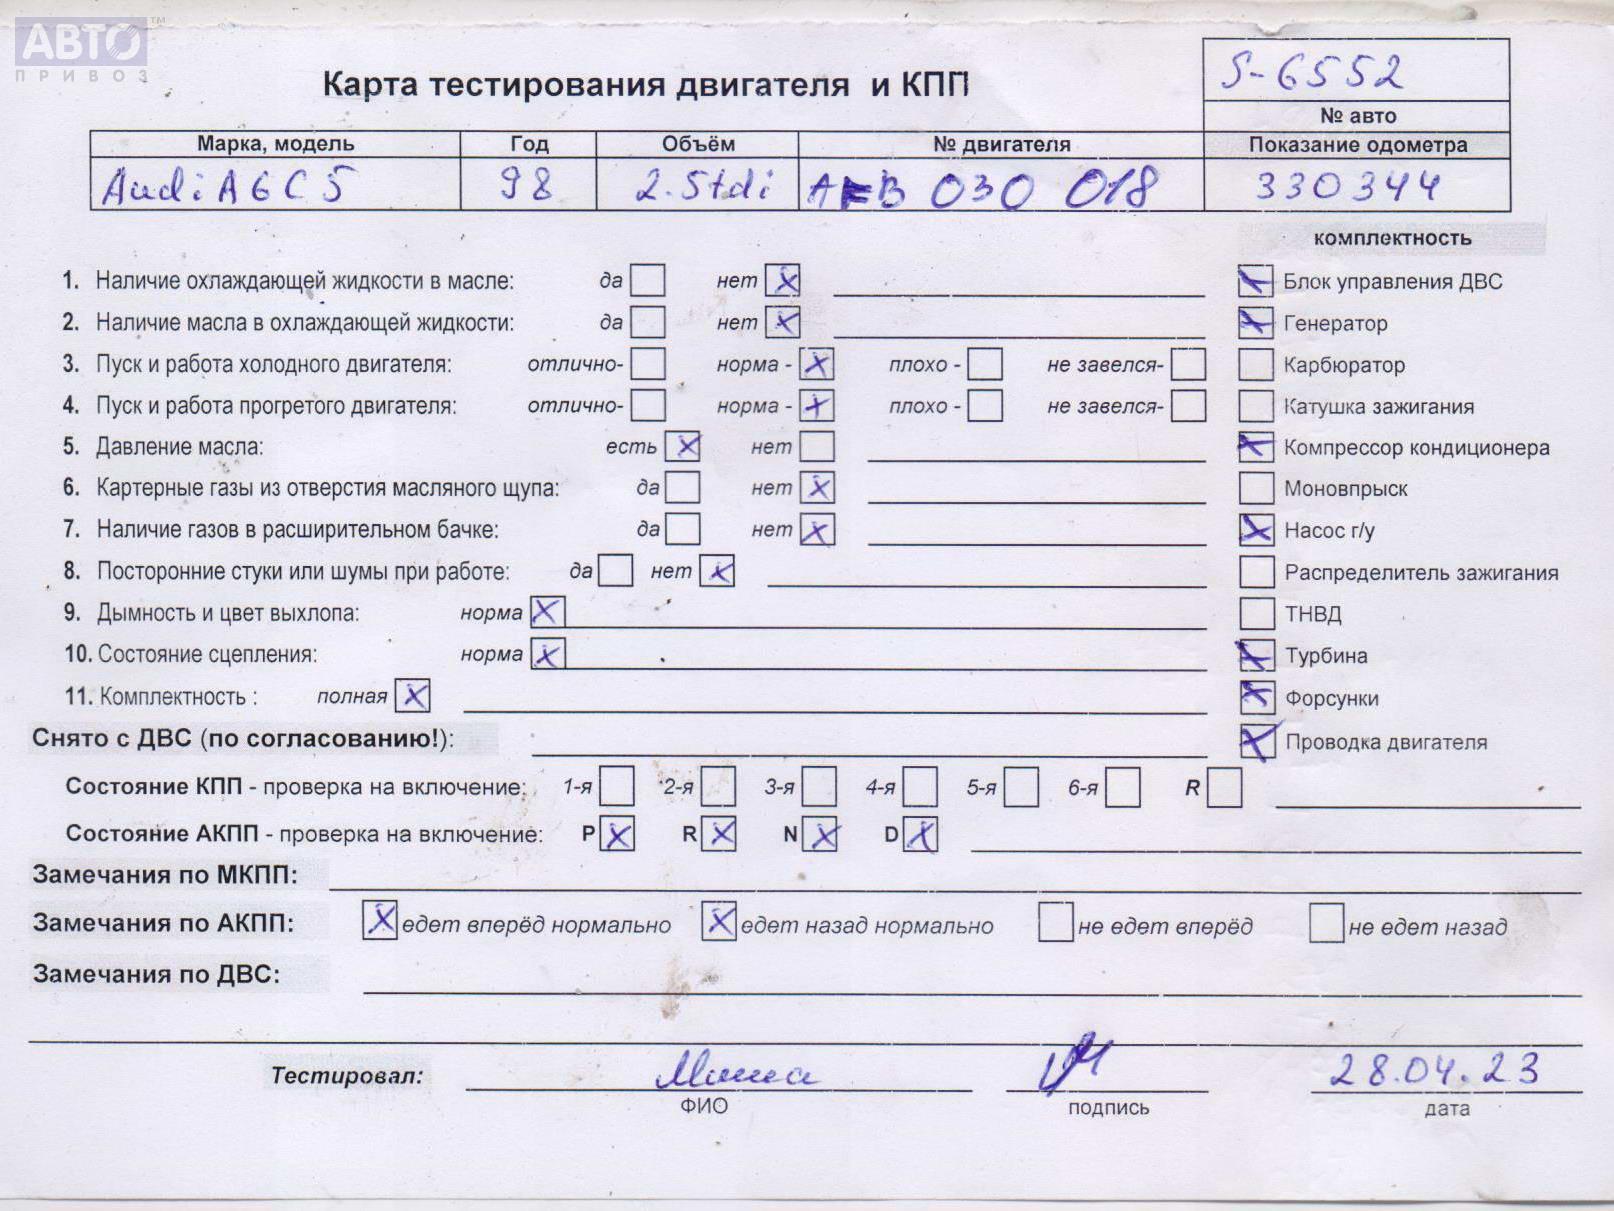 АВТО™
ПРИВОЗ
S-6552
Карта тестирования двигателя и КПП
№ авто
Марка, модель Год Объём № двигателя Показание одометра
Audi A6 C5 98 2.5tdi 030 018 330344
комплектность
1. Наличие охлаждающей жидкости в масле: да нет X Блок управления ДВС
2. Наличие масла в охлаждающей жидкости: да нет X Генератор
3. Пуск и работа холодного двигателя: отлично- норма - X плохо - не завелся- Карбюратор
4. Пуск и работа прогретого двигателя: отлично- норма - X плохо - не завелся- Катушка зажигания
5. Давление масла: есть X нет Компрессор кондиционера
6. Картерные газы из отверстия масляного щупа: да нет X Моновпрыск
7. Наличие газов в расширительном бачке: да нет X Насос г/у
8. Посторонние стуки или шумы при работе: да нет X Распределитель зажигания
9. Дымность и цвет выхлопа: норма X ТНВД
10. Состояние сцепления: норма X Турбина
11. Комплектность : полная X Форсунки
Снято с ДВС (по согласованию!): Проводка двигателя
Состояние КПП - проверка на включение: 1-я 2-я 3-я 4-я 5-я 6-я R
Состояние АКПП - проверка на включение: P X R X N X D X
Замечания по МКПП:
Замечания по АКПП: X едет вперёд нормально X едет назад нормально не едет вперёд не едет назад
Замечания по ДВС:
Тестировал: Миша 28.04.23
ФИО подпись дата